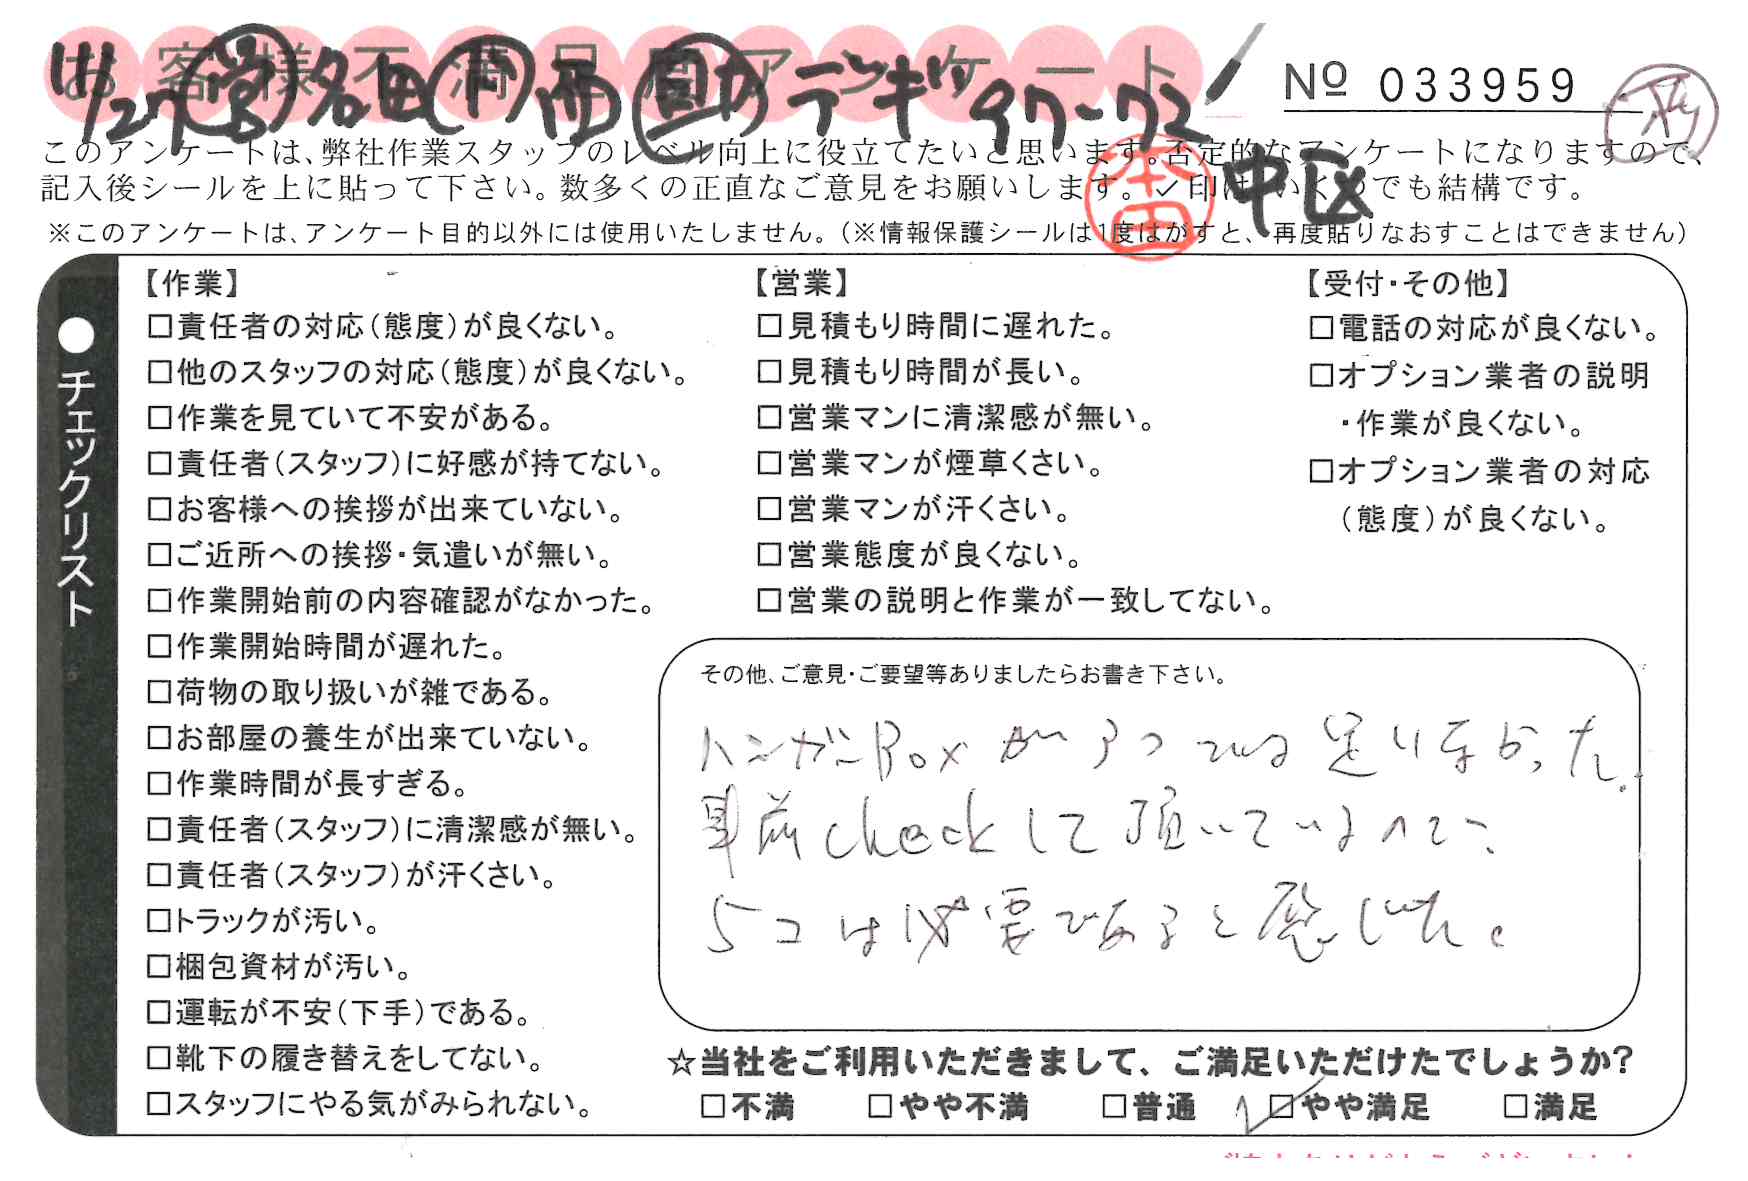 お客様不満足度アンケート
No 033959
11/27 営 名田 西 デンキ 97-72
中区
本田
このアンケートは、弊社作業スタッフのレベル向上に役立てたいと思います。否定的なアンケートになりますので、
記入後シールを上に貼って下さい。数多くの正直なご意見をお願いします。✓印はいくつでも結構です。
※このアンケートは、アンケート目的以外には使用いたしません。(※情報保護シールは1度はがすと、再度貼りなおすことはできません)
●チェックリスト
【作業】
□責任者の対応(態度)が良くない。
□他のスタッフの対応(態度)が良くない。
□作業を見ていて不安がある。
□責任者(スタッフ)に好感が持てない。
□お客様への挨拶が出来ていない。
□ご近所への挨拶・気遣いが無い。
□作業開始前の内容確認がなかった。
□作業開始時間が遅れた。
□荷物の取り扱いが雑である。
□お部屋の養生が出来ていない。
□作業時間が長すぎる。
□責任者(スタッフ)に清潔感が無い。
□責任者(スタッフ)が汗くさい。
□トラックが汚い。
□梱包資材が汚い。
□運転が不安(下手)である。
□靴下の履き替えをしてない。
□スタッフにやる気がみられない。
【営業】
□見積もり時間に遅れた。
□見積もり時間が長い。
□営業マンに清潔感が無い。
□営業マンが煙草くさい。
□営業マンが汗くさい。
□営業態度が良くない。
□営業の説明と作業が一致してない。
【受付・その他】
□電話の対応が良くない。
□オプション業者の説明
・作業が良くない。
□オプション業者の対応
(態度)が良くない。
その他、ご意見・ご要望等ありましたらお書き下さい。
ハンガーBoxが 足りなかった。
事前checkして頂いているので、
5コは必要であると感じた。
☆当社をご利用いただきまして、ご満足いただけたでしょうか?
□不満 □やや不満 □普通 ☑やや満足 □満足